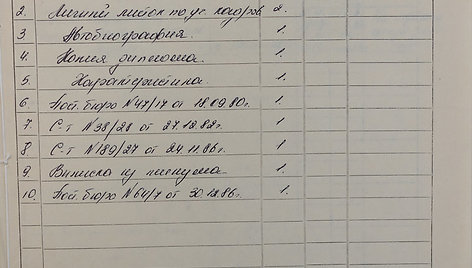 2. Личный листок по уч. кадров 2.
3 Автобиография. 1.
4. Копия диплома. 1.
5. Характеристика 1.
6. Пост. бюро N47/17 от 18.09.80г. 1.
7. С-т N38/28 от 27.12.82г. 1.
8 С-т N189/27 от 24.11.86г. 1.
9. Выписка из пленума. 1.
10. Пост. бюро N64/7 от 30.12.86г. 1.